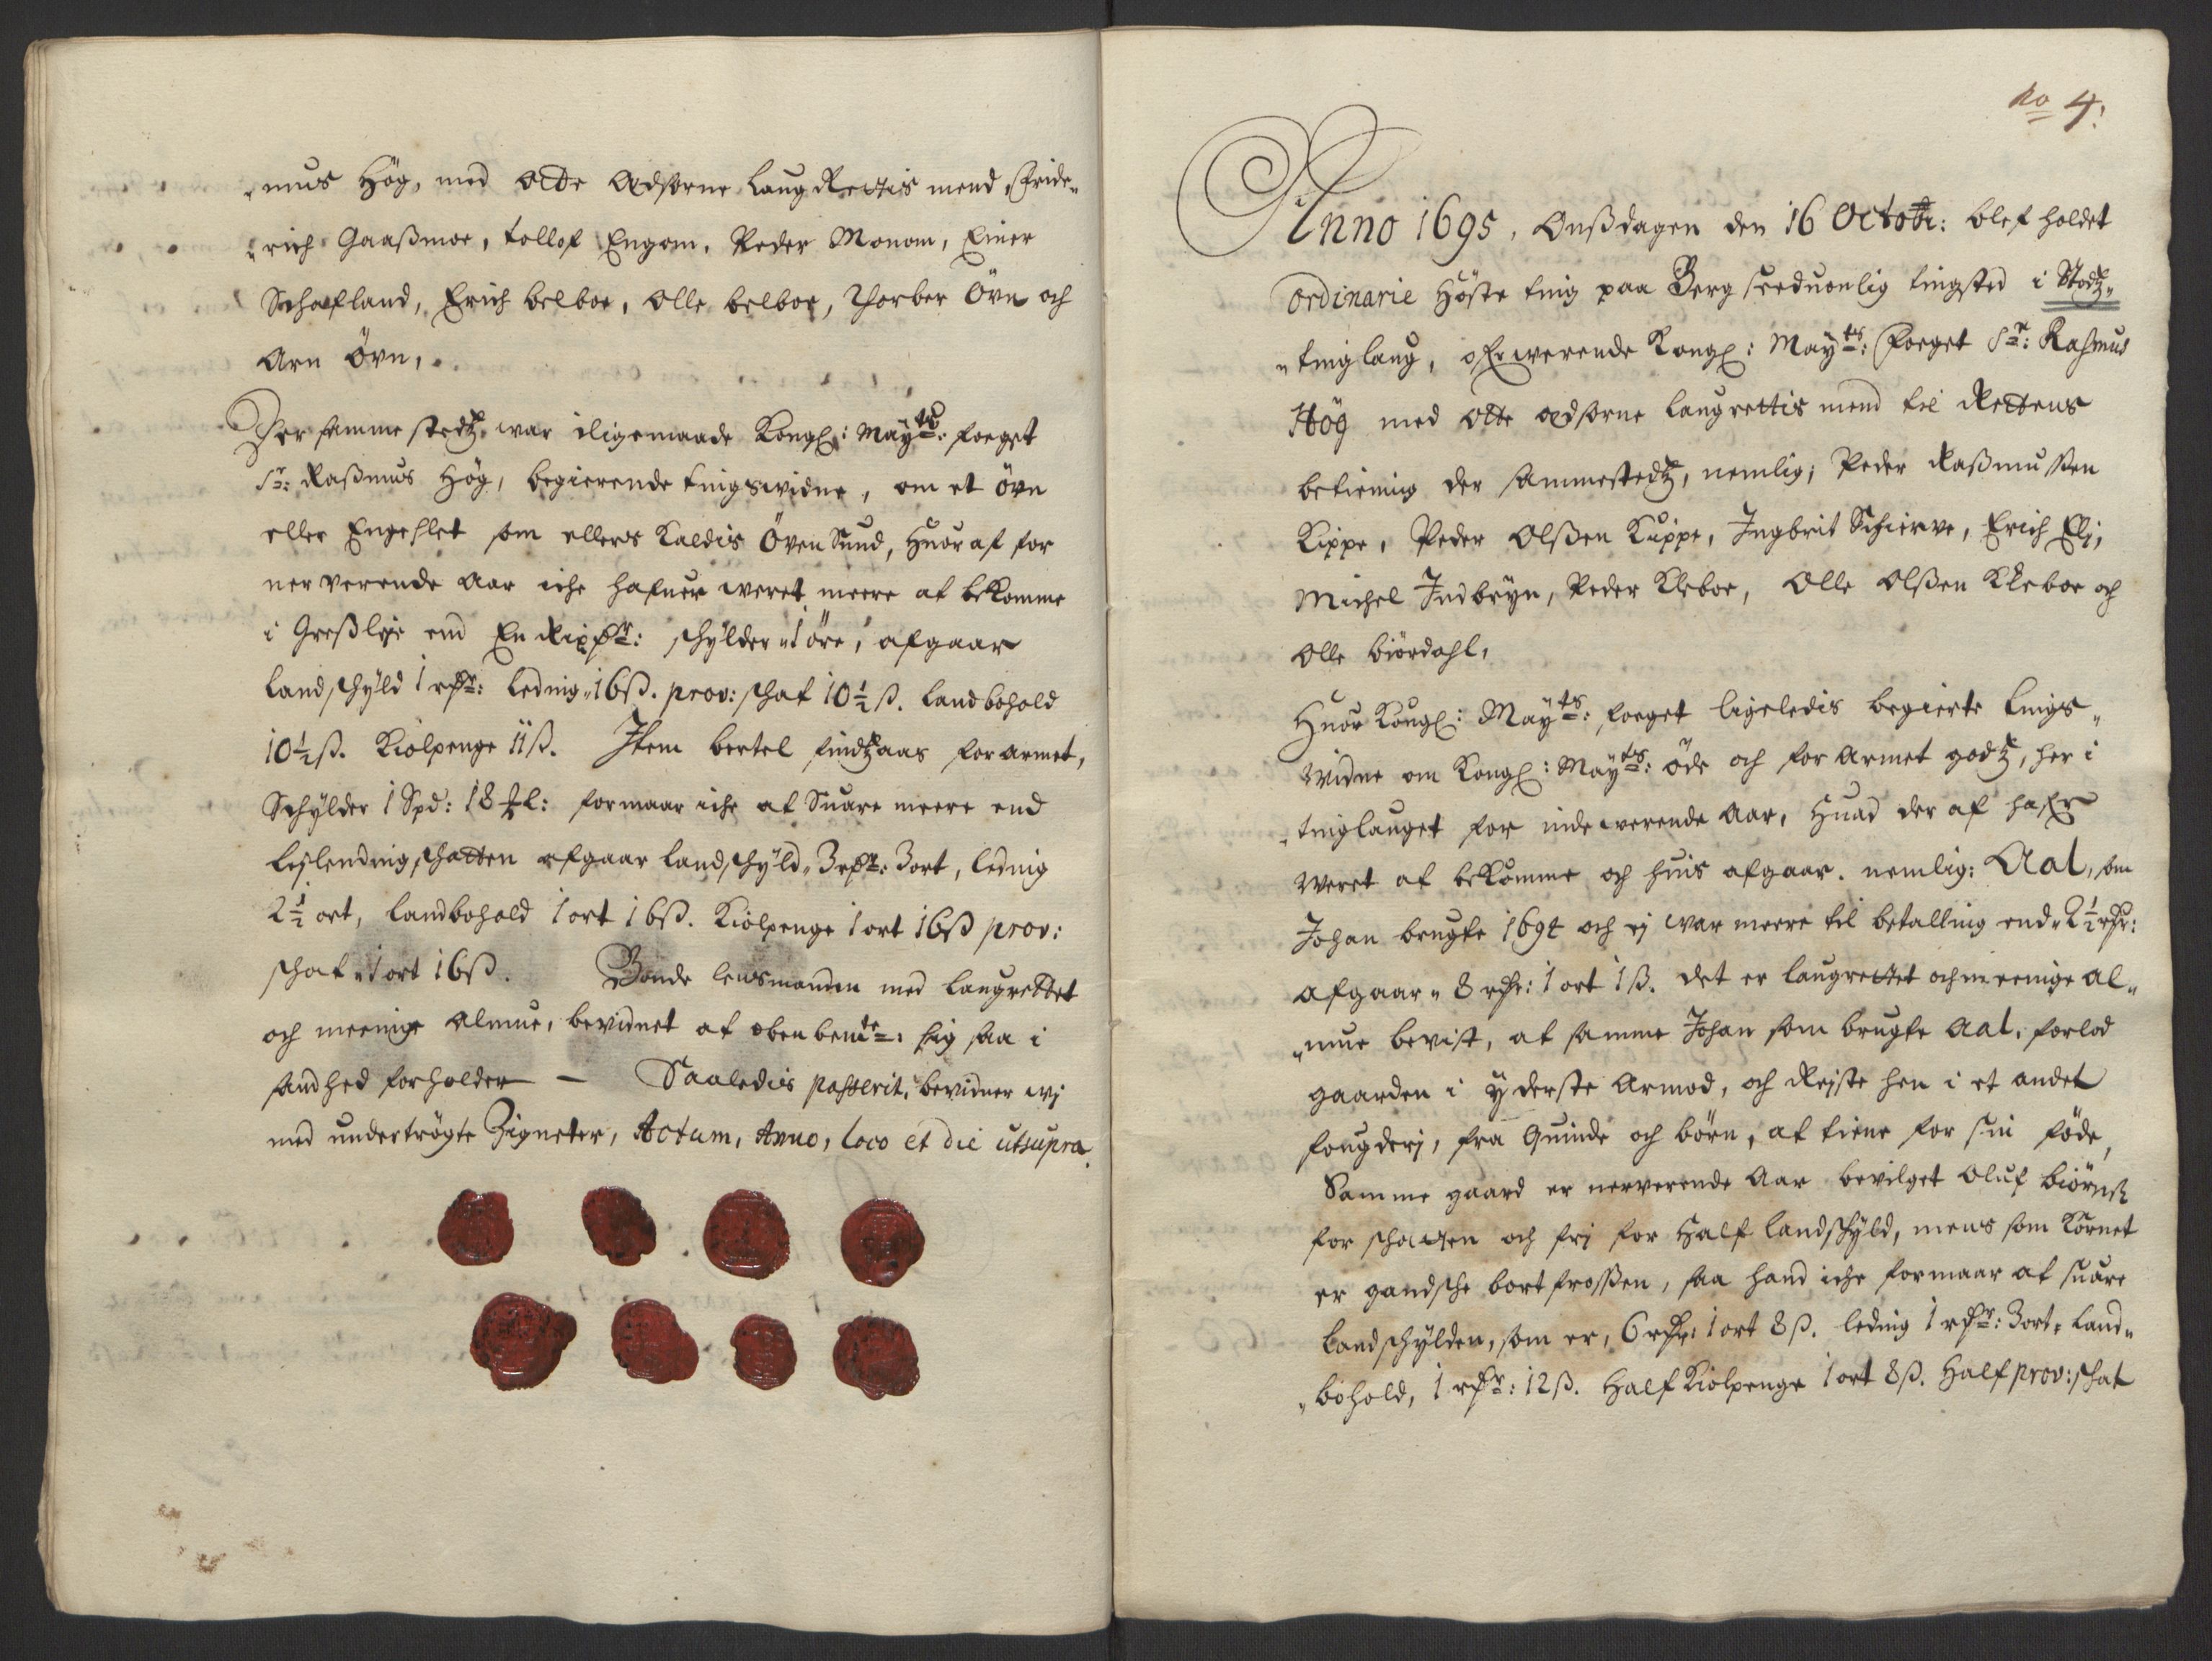 "mus Høg, med otte Edsorne LaugRettis mend, Fride"
"rich Gaaßmoe, Tollof Engom, Peder Monom, Einer
Schafland, Erich belboe, Olle belboe, Thorber Övn och
Arn Övn,
Der samme stedtz war iligemaade Kongl: Mayts: foeget
Sr: Raßmus Høg, begierende tingswidne, om et övn
eller Engeslet som ellers Kaldis Öven Sund, Huor af for
nerverende Aar iche hafuer weret meere at bekomme
i Greßleje end En Rixdr: schylder "1 öre, afgaar
Landschyld 1 rdr: Leding "16ß. prov: schat 10½ ß. Landbohold
10½ ß. Kiolpenge 11ß. Item bertel findtzaas forarmet,
Schylder 1 Spd: 18 ℔l: formaar iche at Suare meere end
Leslending schatten afgaar Landschyld "3 rdr: 3 ort, Leding
2½ ort, Landbohold 1 ort 16ß. Kiolpenge 1 ort 16ß prov:
schat "1 ort 16ß. Bonde lensmanden med Laugrettet
och meenige Almue, bevidnet at obenbente: sig saa i
sandhed forholder — Saaledis passerit, bevidner wj
med undertrögte Zigneter, Actum, Anno, loco et die utsupra.
No 4:
Anno 1695, Onßdagen den 16 Octobr: blef holdet
ordinarie Höste ting paa Berg seeduonlig tingsted i Stodtz"
"tinglaug, ofverwerende Kongl: Mayts: foeget Sr: Rasmus
Høg med otte edsorne laugrettis mend til Rettens
betiening der sammestedtz, nemlig; Peder Raßmussen
Kippe, Peder Olßen Kuippe, Ingbrit Schierve, Erich Elj,
Michel Indbryn, Peder Kleboe, Olle Olßen Kleboe och
Olle biördahl,
Huor Kongl: Mayts: foeget ligeledis begierte tings"
widne om Kongl: Mayts: öde och forarmet godtz, her i
"tinglauget for indewerende Aar, Huad der af hafver
weret at bekomme och huis afgaar. nemlig: Aal, som
Johan brugte 1694 och ej war meere til betalling end "2½ rdr:
afgaar "8 rdr: 1 ort 1ß. det er laugrettet och meenige al"
"mue bevist, at samme Johan som brugte Aal, forlod
gaarden i yderste Armod, och Rejste hen i et andet
fougderj, fra Quinde och börn, at tiene for sin föde,
Samme gaard er nerverende Aar bevilget Oluf biörnß
for schatten och frj for Half Landschyld, mens som Kornet
er gandsche bortfrossen, saa hand iche formaar at suare
Landschylden, som er, 6 rdr: 1 ort 8ß. Leding 1 rdr: 3 ort, Land"
"bohold, 1 rdr: 12ß. Half Kiolpenge 1 ort 8ß. Half prov: schat